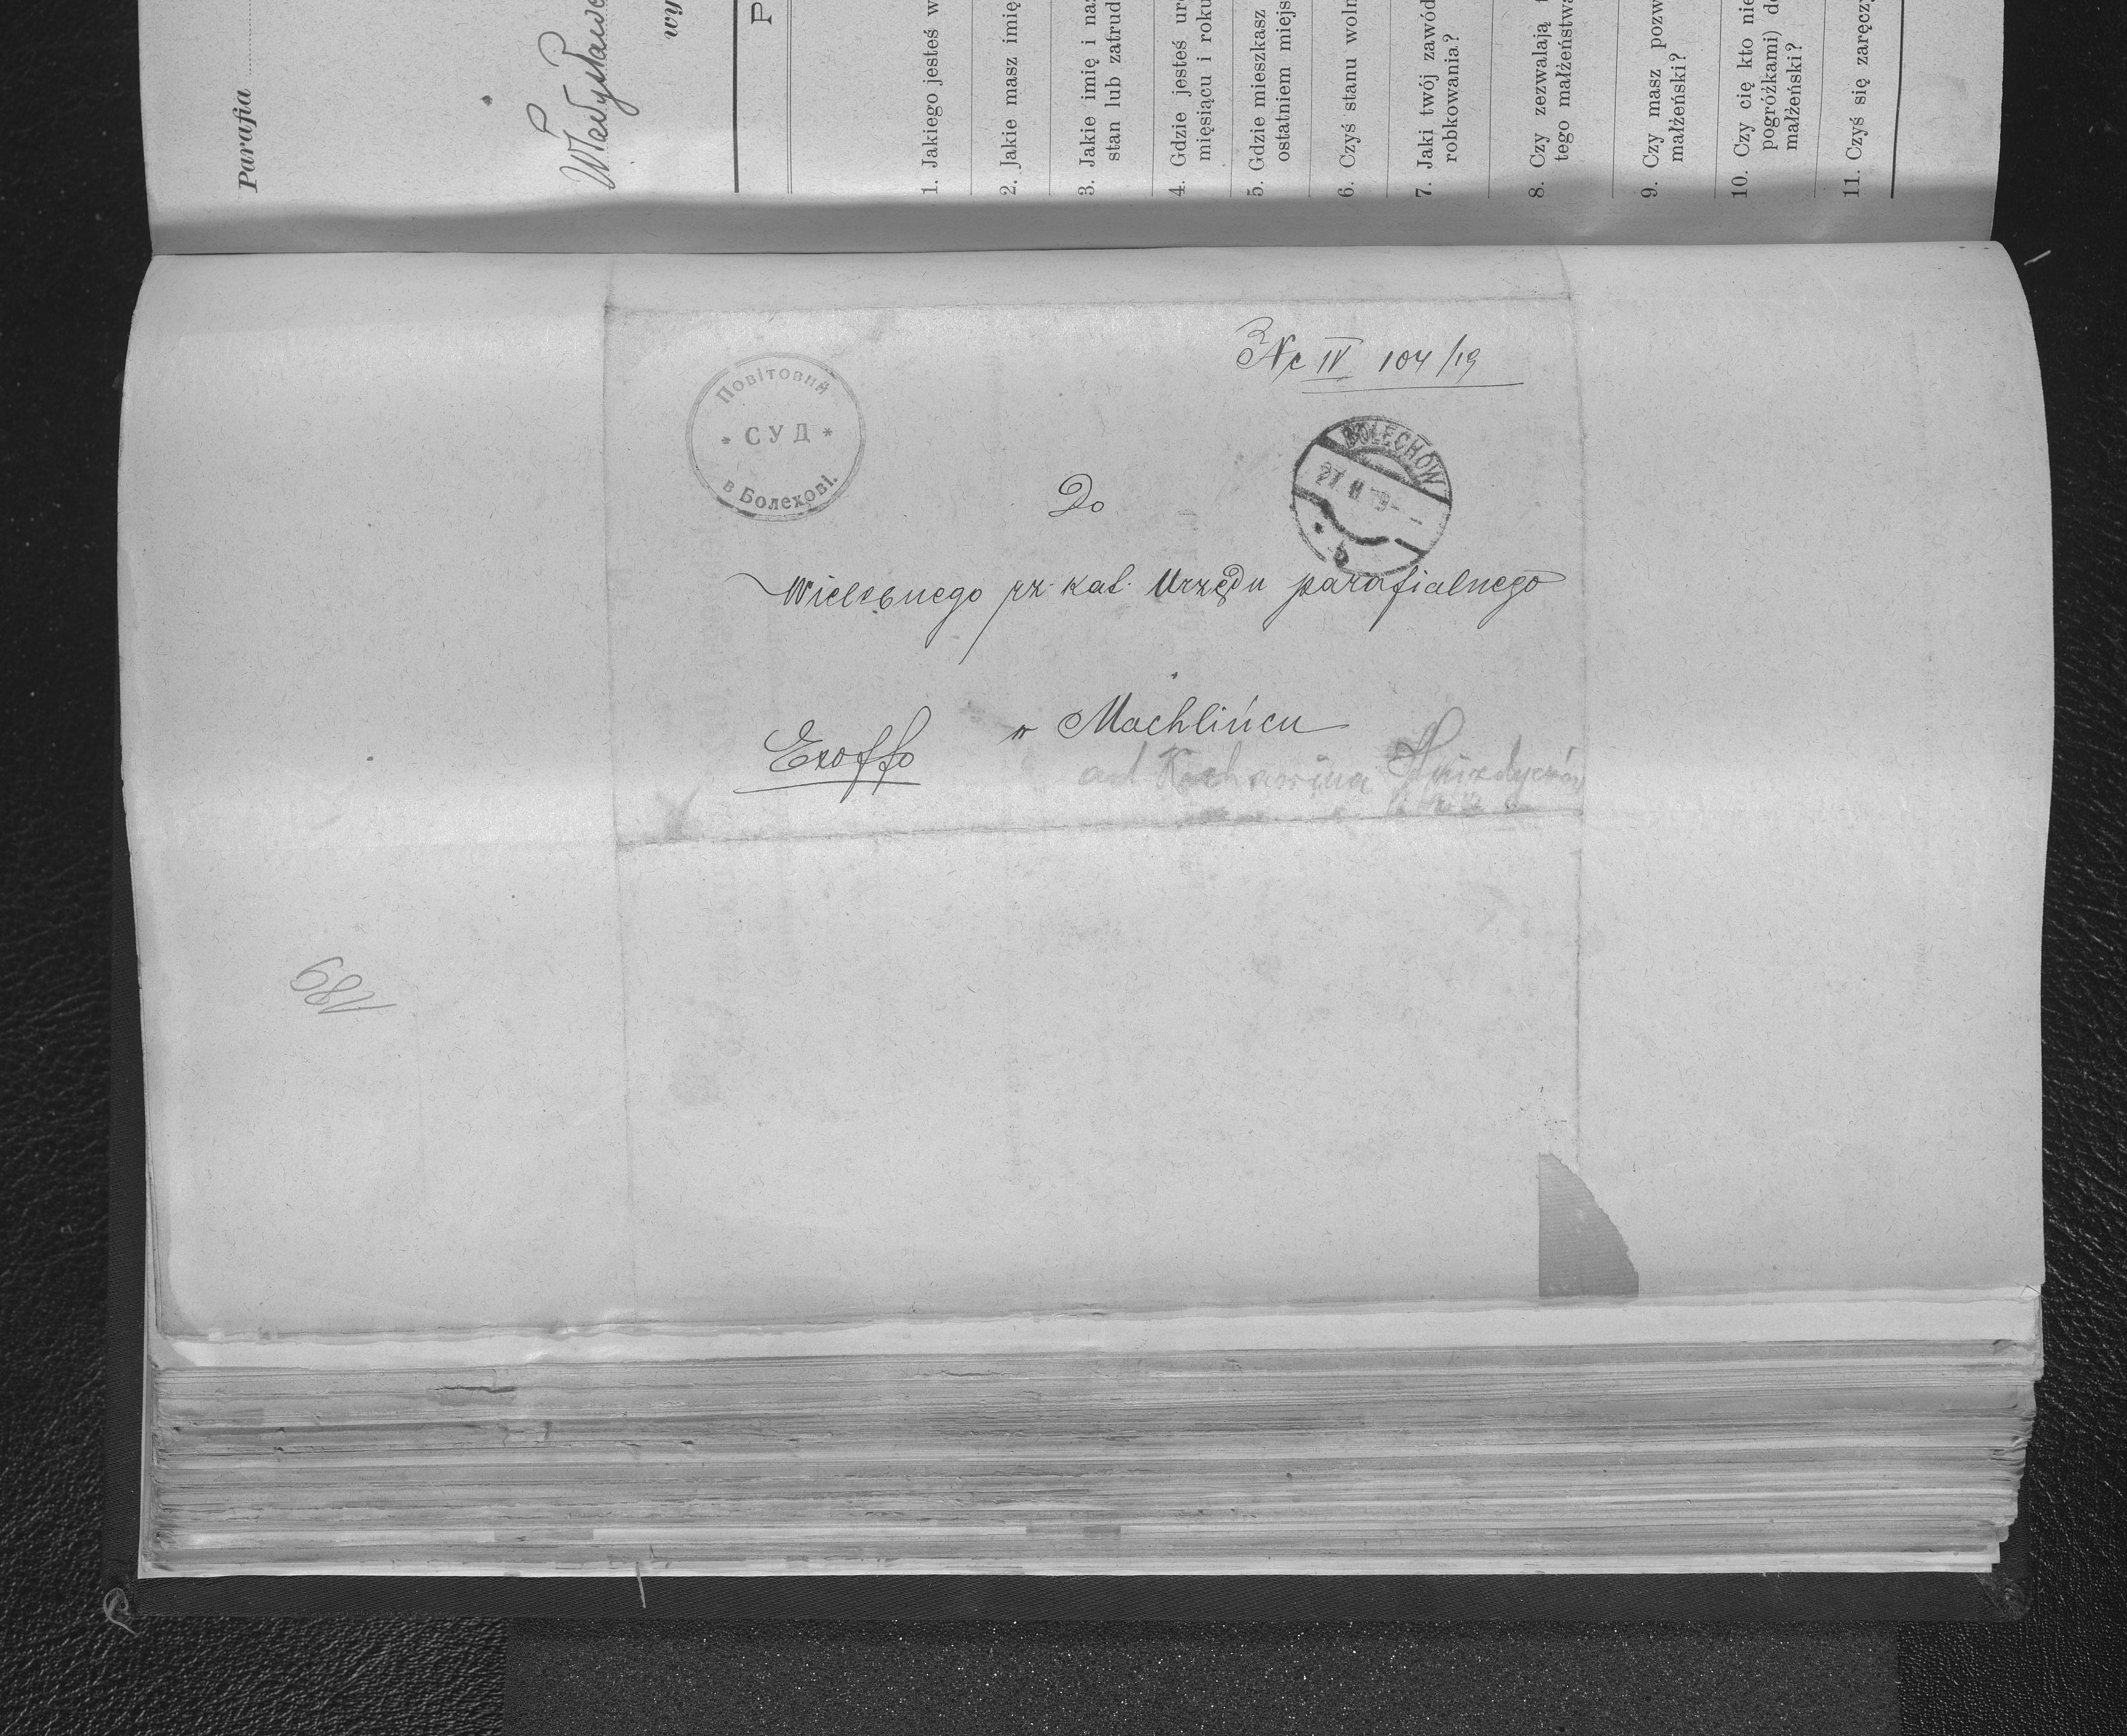 Parafia
Władysław
wy
P
1. Jakiego jesteś w
2. Jakie masz imię
3. Jakie imię i na
stan lub zatrud
4. Gdzie jesteś ur
miesiącu i roku
5. Gdzie mieszkasz
ostatniem miejs
6. Czyś stanu woln
7. Jaki twój zawód
robkowania?
8. Czy zezwalają t
tego małżeństwa
9. Czy masz pozw
małżeński?
10. Czy cię kto nie
pogróżkami) do
małżeński?
11. Czyś się zaręczy
Nc IV 104/19
Повітовий
* СУД *
в Болехові.
BOLECHÓW
27 II 19
b
Do
Wielebnego rz. kat. Urzędu parafialnego
w Machlińcu
Exoffo
ad Kochawina Hnizdyczów
189